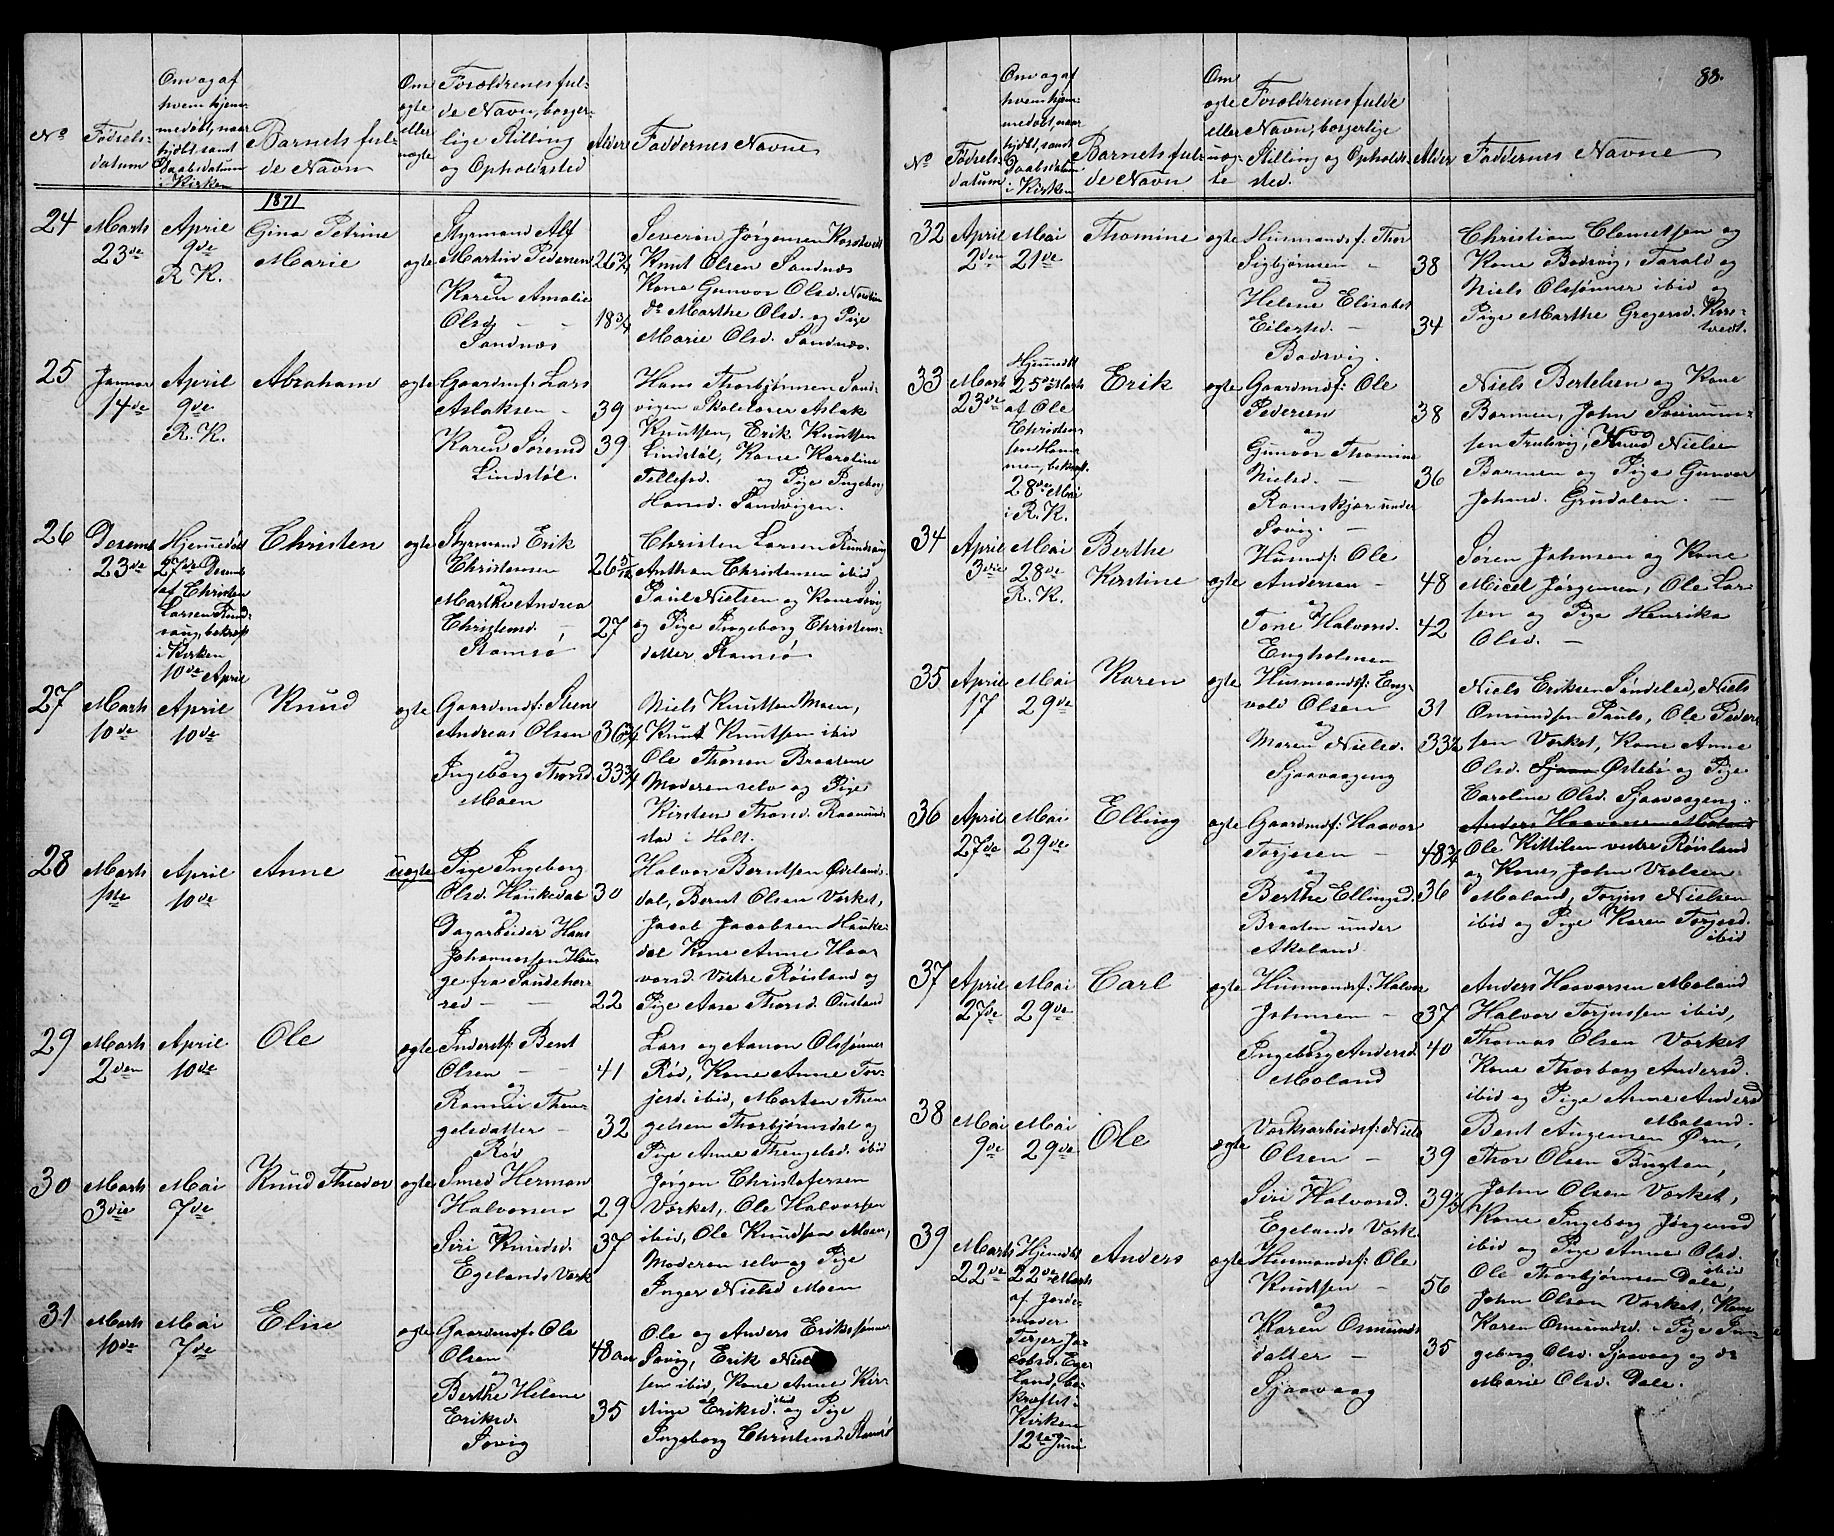 88.
No
Fødsels-
datum
Om og af
hvem hjem-
medøbt, naar
samt
Daabsdatum
i Kirken
Barnets ful-
de Navn
Om
ægte
eller
uægte
Forældrenes ful-
de Navn, borger-
lige Stilling
og Opholdssted
Alder
Faddernes Navne
1871
24
Marts
23de
April
9de
R. K.
Gina Petrine
Marie
ægte
Styrmand Alf
Martin Pedersen
og
Karen Amalie
Olsd.
Sandnæs
26 3/4
18 3/4
Severin Jørgensen
Knut Olsen Sandnæs
Kone Gunvor Olsd.
do Marthe Olsd. og Pige
Marie Olsd. Sandnæs.
25
Januar
14de
April
9de
R. K.
Abraham
ægte
Gaardmf: Lars
Aslaksen
og
Karen Sørensd
Lindstøl.
39
39
Hans Thorbjørnsen Sand-
vigen Skolelærer Aslak
Knutsen, Erik Knutsen
Lindstøl, Kone Karoline
Tellefsd. og Pige Ingeborg
Hansd. Sandvigen.
26
Desemb
23de
Hjemmedøbt
27de Desemb
af Christen
Larsen Rund-
vaug, bekræft
i Kirken
10de April
Christen
ægte
Styrmand Erik
Christensen
og
Marthe Andrea
Christensd.
Ramsø
26 5/12
27
Christen Larsen Rundvaug
Anthon Christensen ibid
Paul Nielsen og Kone
og Pige Ingeborg Christens-
datter Ramsø
27
Marts
10de
April
10de
Knud
ægte
Gaardmf: Sten
Andreas Olsen
og
Ingeborg Thorsd.
Moen
36 3/4
33 3/4
Niels Knutsen Moen,
Knut Knutsen ibid
Ole Thorsen Braatene
Moderen selv og Pige
Kirsten Thorsd.
i Holt.
28
Marts
1ste
April
10de
Anne
uægte
Pige Ingeborg
Olsd. Haukedal
og
Dagarbeider Hans
Johannessen Hau-
ge fra Sandeher-
red
30
22
Halvor Berntsen Ødelands-
dal, Bernt Olsen Værket,
Jacob Jacobsen Hauke-
dal Kone Anne Haa-
vorsd. Vestre Røisland og
Pige Aase Thorsd. Ousland
29
Marts
2den
April
10de
Ole
ægte
Inderstf: Bent
Olsen
og
Ramsi Then-
gelsdatter
Røv
41
32
Lars og Aanon Olssønner
Røv, Kone Anne Ter-
jesd. ibid, Morten Then-
gelsen Thorbjørnsdal og
Pige Anne Thengelsd. ibid
30
Marts
3die
Mai
7de
Knud Theodor
ægte
Smed Herman
Halvorsen
og
Siri Knudsd.
Egelands Værk
29
37
Jørgen Christofersen
Værket, Ole Halvorsen
ibid, Ole Knudsen Moen,
Moderen selv og Pige
Inger Nielsd Moen
31
Marts
10de
Mai
7de
Elise
ægte
Gaardmf: Ole
Olsen
og
Berthe Helene
Eriksd.
Sovig
48 aar
35
Ole og Anders Erikssønner
Sovig, Erik Niel-
sen ibid, Kone Anne Kir-
stine Eriksd. ibid og Pige
Ingeborg Christensd. Ramsø
No
Fødsels-
datum
Om og af
hvem hjem-
medøbt, naar
samt
Daabsdatum
i Kirken
Barnets ful-
de Navn
Om
ægte
eller
uæg-
te
Forældrenes fulde
Navn, borgerlige
Stilling og Opholds-
sted.
Alder
Faddernes Navne
32
April
2den
Mai
21de
Thomine
ægte
Husmandsf: Thor
Sigbjørnsen
og
Helene Elisabet
Eilertsd.
Bodvig.
38
34
Christian Clemetsen og
Kone Bodvig, Tarald og
Niels Olssønner ibid og
Pige Marthe Gregersd.
33
Marts
23de
Hjemdøbt
25de Marts
af Ole
Christen-
sen
bekræft.
28de Mai
i R. K.
Erik
ægte
Gaardmdsf: Ole
Pedersen
og
Gunvor Thomine
Nielsd.
Ramskjær under
Sovig.
38
36
Niels Bertelsen og Kone
Barmen, John
sen Trulsvig, Knud Nielsen
Barmen og Pige Gunvor
Johnsd. Grudalen.
34
April
3die
Mai
28de
R. K.
Berthe
Kirstine
ægte
Husmdsf: Ole
Andersen
og
Tone Halvorsd.
Engholmen
48
42
Søren Johnsen og Kone
Jørgensen, Ole Lar-
sen og Pige Henrike
Olsd.
35
April
17
Mai
29de
Karen
ægte
Husmandsf: Eng-
vold Olsen
og
Maren Nielsd.
Sjaavaageng
31
33 1/2
Niels Eriksen Søndeled, Niels
Omundsen Pauls, Ole Peder-
sen Værket, Kone Anne
Olsd. Sjaav Østebø og Pige
Caroline Olsd. Sjaavaageng.
36
April
27de
Mai
29de
Elling
ægte
Gaardmdsf: Haavor
Terjesen
og
Berthe Ellingsd.
Braaten under
Akeland
48 3/4
36
Anders Haavorsen Moland
Ole Kittilsen vestre Røisland
og Kone, John
Moland, Terjus Nielsen
ibid og Pige Karen Terjesd.
ibid
37
April
27de
Mai
29de
Carl
ægte
Husmandsf: Halvor
Johnsen
og
Ingeborg Andersd.
Moland
37
40
Anders Haavorsen Moland
Halvor Terjussen ibid,
Thomas Olsen Værket
Kone Thorborg Andersd.
ibid og Pige Anne Andersd
Moland.
38
Mai
9de
Mai
29de
Ole
ægte
Værksarbeidsf: Niels
Olsen
og
Siri Halvorsd.
Egelands Værk
39
39 1/2
Bent Augensen Ørn,
Thor Olsen Bugten,
John Olsen Værket,
Kone Ingeborg Jørgensd
ibid og Pige Anne Olsd.
ibid
39
Marts
22de
Hjemdøbt
22de Marts
af Jorde-
moder
Terjer Ja-
cobsd. Ege-
land, be-
kræftet i
Kirken
12te Juni
Anders
ægte
Husmandsf: Ole
Knudsen
og
Karen Osmunds-
datter
Sjaavaag
56
35
Ole Thorbjørnsen Dale,
John Olsen Værket, Kone
Karen Omundsd. Pige In-
geborg Olsd. Sjaavaag og do
Marie Olsd. Dale.